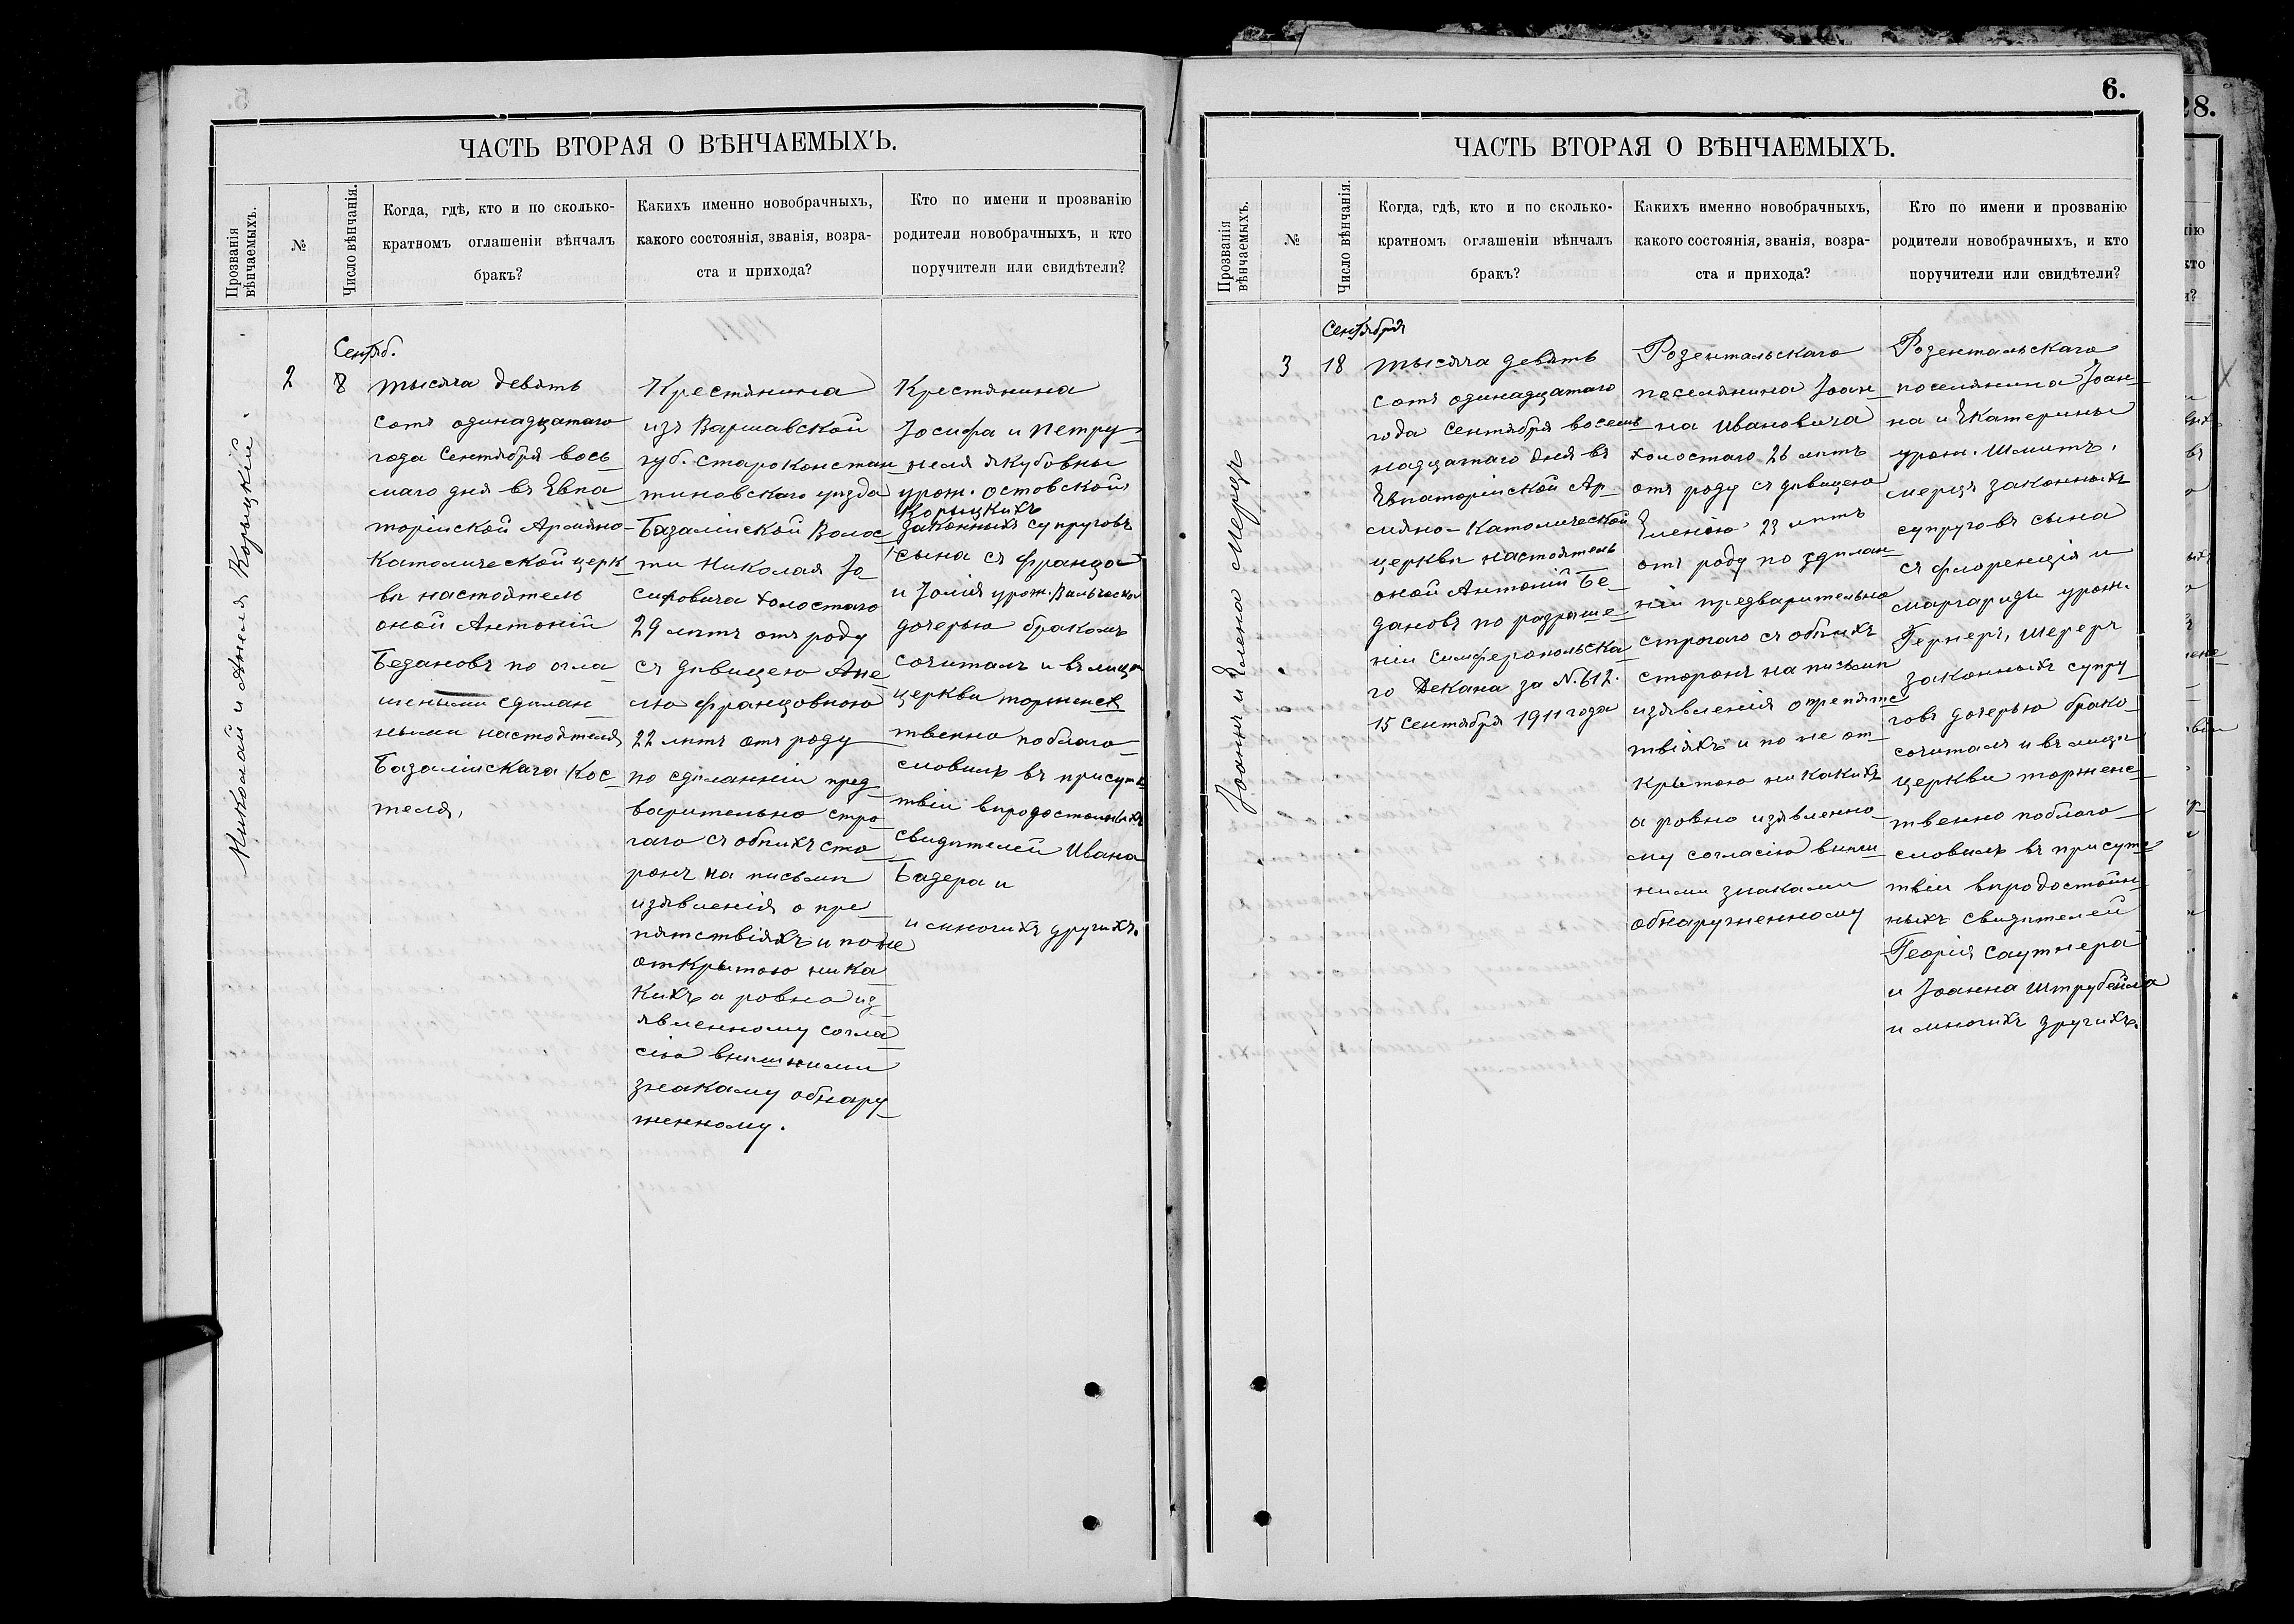 6.
ЧАСТЬ ВТОРАЯ О ВѢНЧАЕМЫХЪ.
Прозванія вѣнчаемыхъ.
№
Число вѣнчанія.
Когда, гдѣ, кто и по сколько-
кратномъ оглашеніи вѣнчалъ
бракъ?
Какихъ именно новобрачныхъ,
какого состоянія, званія, возра-
ста и прихода?
Кто по имени и прозванію
родители новобрачныхъ, и кто
поручители или свидѣтели?
Николай и Анеля Корыцкій.
2
Сентяб.
8
тысяча девять
сотъ одинадцатаго
года Сентября вось
маго дня въ Евпа
торійской Армяно-
Католической церк
ви настоятель
оной Антоній
Бедановъ по огла
шеніями сдѣлан
ными настоятеля
Базалійскаго Кос
теля,
Крестянина
изъ Варшавской
губ. Староконстан
тиновскаго уѣзда
Базалійской Волос
ти Николая Іо
сифовича холостаго
29 лѣтъ отъ роду
съ дѣвицею Ане
лю Францовною
22 лѣтъ отъ роду
по сдѣланніи пред
варительно стро
гаго съ обѣихъ сто
ронъ на письмѣ
изявленія о пре
пятствіяхъ и по не
открытою ника
кихъ а ровно из
явленному согла
сію внѣшними
знакаму обнару
женному.
Крестянина
Іосифа и Петру
неля Якубовны
урож. Остовской
Корыцкихъ
законныхъ супруговъ
сына съ Францa
и Юлія урож.
дочерью бракомъ
сочиталъ и въ лицѣ
церкви торженст
твенно поблаго
словилъ въ присутс
твіи впродостойныхъ
свидѣтелей Ивана
Бадера и
и многихъ другихъ.
ЧАСТЬ ВТОРАЯ О ВѢНЧАЕМЫХЪ.
Прозванія вѣнчаемыхъ.
№
Число вѣнчанія.
Когда, гдѣ, кто и по сколько-
кратномъ оглашеніи вѣнчалъ
бракъ?
Какихъ именно новобрачныхъ,
какого состоянія, званія, возра-
ста и прихода?
Кто по имени и прозванію
родители новобрачныхъ, и кто
поручители или свидѣтели?
Іоаннъ и Елена Мерцъ
3
Сентября
18
тысяча девять
сотъ одинадцатаго
года Сентября восем
надцатаго дня въ
Евпаторійской Ар
мяно-Католической
церкви настоятель
оной Антоній Бе
дановъ по разрѣше
ніи Симферопольска
го Декана за N. 612.
15 Сентября 1911 года
Розентальскаго
поселянина Іоан
на Ивановича
холостаго 26 лѣтъ
отъ роду съ дѣвицею
Еленою 23 лѣтъ
отъ роду по здѣлан
ніи предварительно
строгаго съ обѣихъ
сторонъ на письмѣ
изявленія о препятс
твіяхъ и по не от
крытою никакихъ
а ровно изявленно
му согласію внѣш
ними знаками
обнаруженному
Розентальскаго
поселянина Іоан
на и Екатерины
урож. Шмитъ,
Мерцъ законныхъ
супруговъ сына
съ Флоренція и
Маргариды урож.
Гернеръ, Шереръ
законныхъ супру
говъ дочерью брако
сочиталъ и въ лицѣ
церкви торженс
твенно поблаго
словилъ въ присутс
твіи впродостойн
ныхъ свидѣтелей
Георія Саутнера
и Іоанна Штрубейла
и многихъ другихъ.
28.